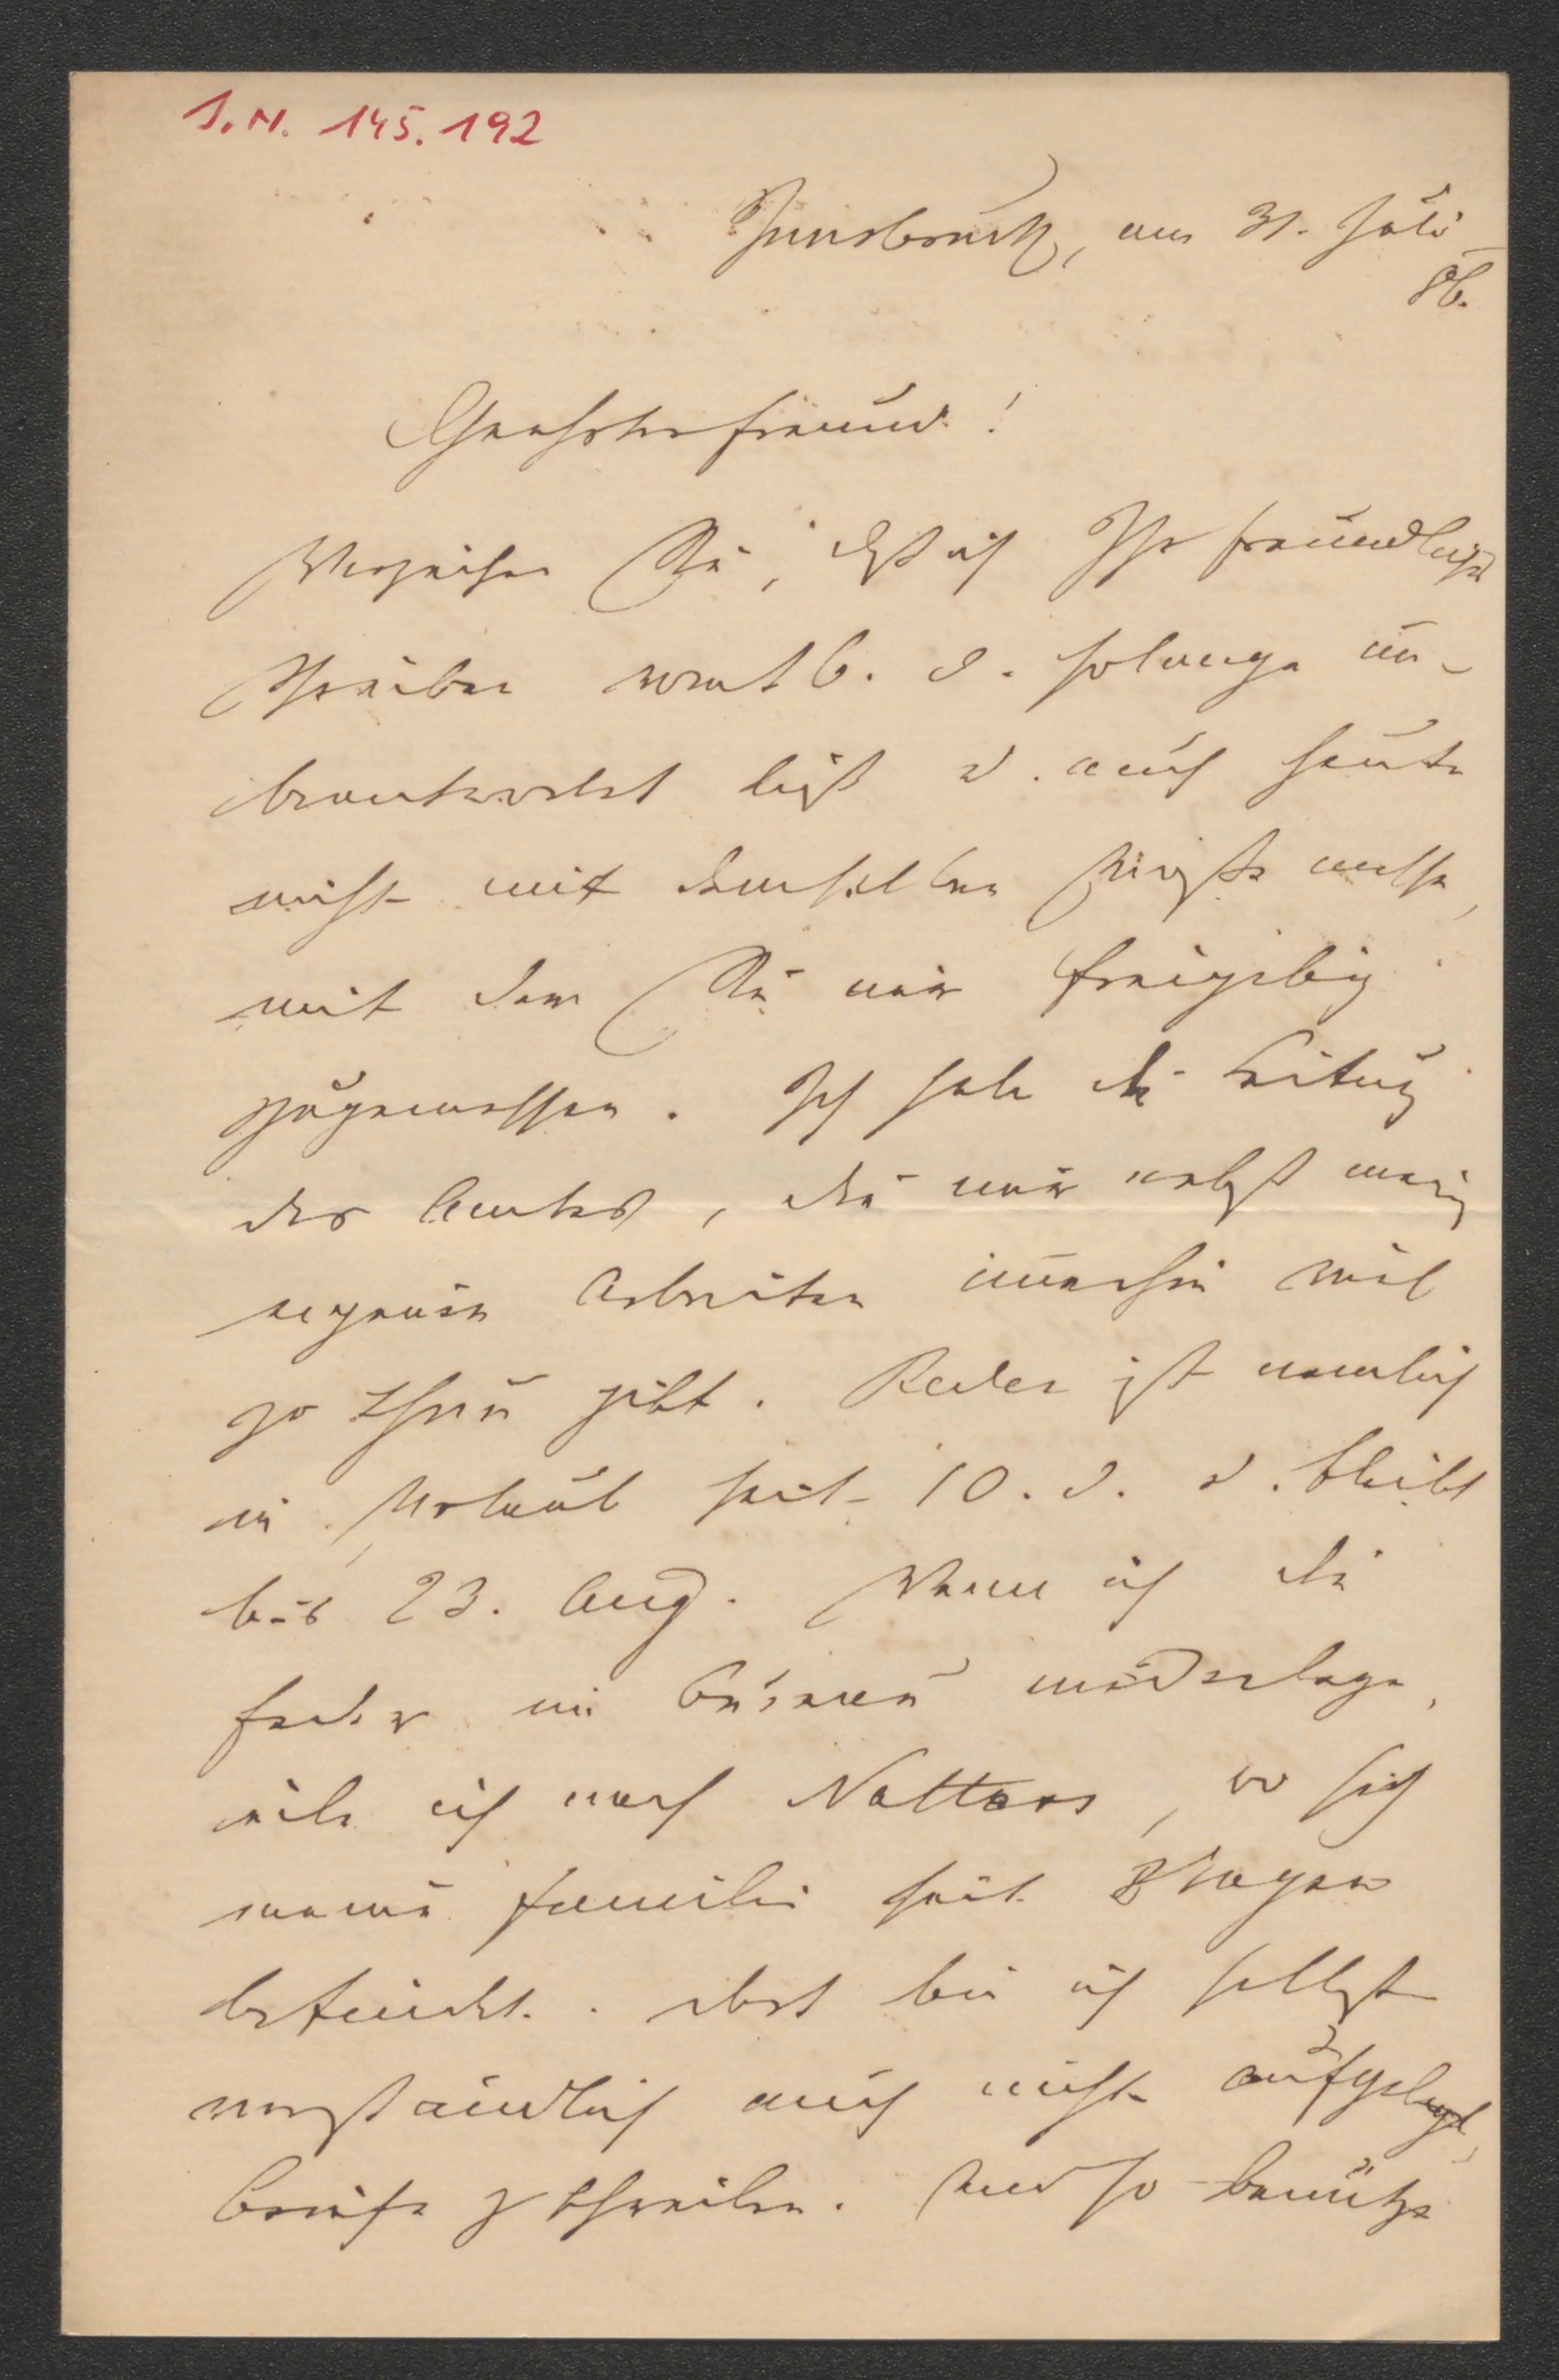 I.N. 145.192
Innsbruck, am 31. Juli
86.
Geehrter Freund!
Verzeihen Sie, daß ich Ihr freundliches
Schreiben vom 16. d. solange un-
beantwortet ließ u. auch heute
nicht mit demselben Maße messe,
mit dem Sie mir freigebig
zugemessen. Ich habe die Leitung
des Amtes, die mir nebst meinen
eigenen Arbeiten immerhin viel
zu thun gibt. Reder ist nemlich
in Urlaub seit 10. d. u. bleibt
bis 23. Aug. Wenn ich die
Feder im Bureau niederlege,
eile ich nach Natters, wo sich
meine Familie seit 8 Tagen
befindet. Dort bin ich selbst
verständlich auch nicht aufgelegt,
Briefe z schreiben. Und so benütze